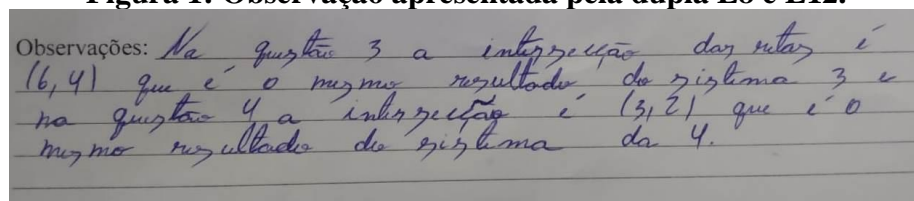 Figura 1: Observação apresentada pela dupla E8 e E12.
Observações: Na questão 3 a intersecção das retas é
(6,4) que é o mesmo resultado do sistema 3 e
na questão 4 a intersecção é (3,2) que é o
mesmo resultado do sistema da 4.